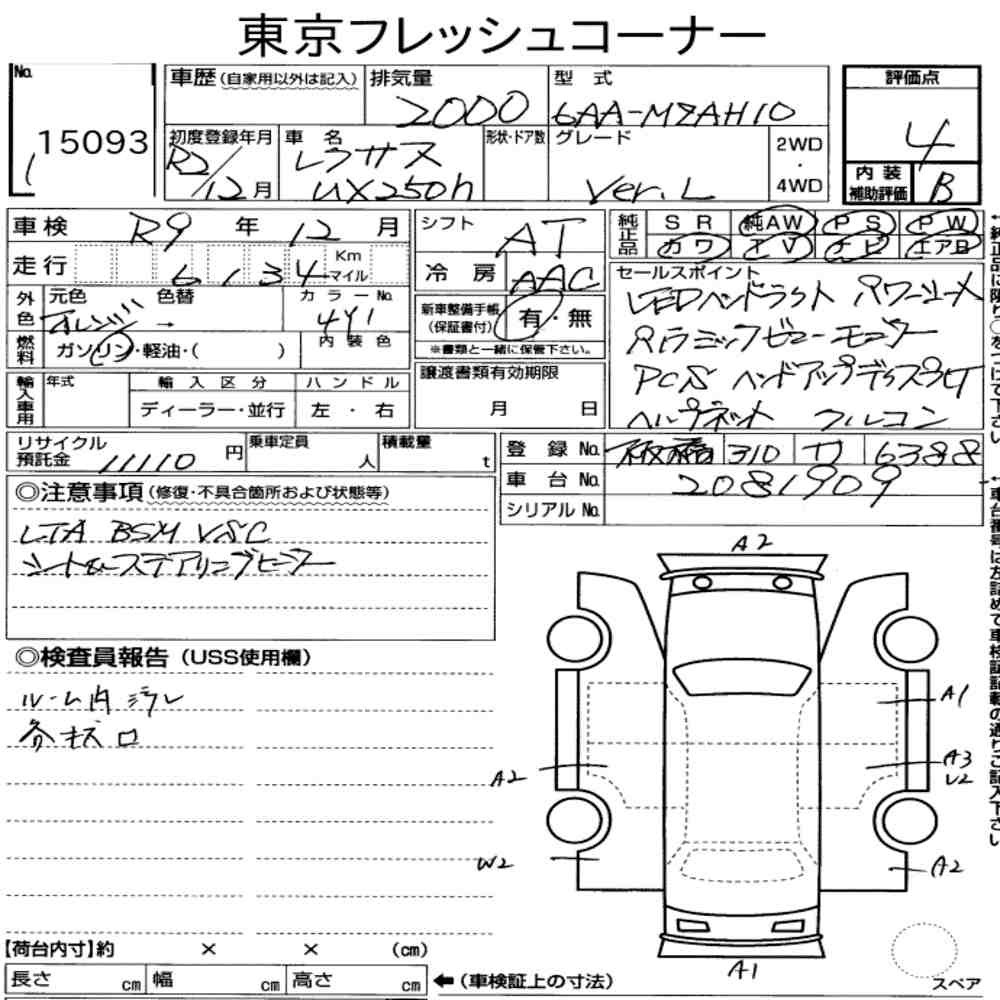 東京フレッシュコーナー
No.
15093
車歴(自家用以外は記入)
排気量
2000
型 式
6AA-MZAH10
評価点
4
初度登録年月
R2/12月
車 名
レクサス
UX250h
形状・ドア数
グレード
Ver.L
2WD
・
4WD
内 装
補助評価
B
車検 R9 年 12 月
走行 6,134 Km マイル
外色
元色
オレンジ
色替
→
カラーNo.
4Y1
燃料
ガソリン・軽油・( )
内 装 色
輸入車用
年式
輸 入 区 分
ディーラー・並行
ハ ン ド ル
左 ・ 右
シフト
AT
冷 房
AAC
新車整備手帳
(保証書付)
有・無
※書類と一緒に保管下さい。
譲渡書類有効期限
月 日
純正品
SR 純AW PS PW
カワ TV ナビ エアB
セールスポイント
LEDヘッドライト パワーシート
パノラミックビューモニター
PCS ヘッドアップディスプレイ
ヘルプネット フルコン
リサイクル
預託金 11110 円
乗車定員
人
積載量
t
登 録 No. 板橋 310 カ 6388
車 台 No. 2081909
シリアル No.
◎注意事項(修復・不具合箇所および状態等)
LTA BSM VSC
シート&ステアリングヒーター
◎検査員報告(USS使用欄)
ルーム内ヨゴレ
各キズ
A2
A1
A3
U2
A2
A2
W2
A1
スペア
【荷台内寸】約 × × (cm)
長さ cm 幅 cm 高さ cm
←(車検証上の寸法)
↑純正品に限り○をつけて下さい
↑車台番号は左詰めで車検証記載の通りご記入下さい